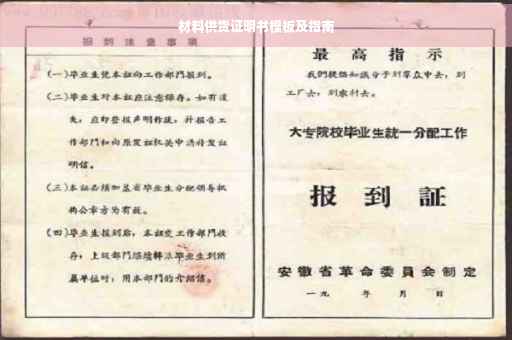 材料供货证明书模板及指南
报到注意事项
(一)毕业生凭本证向工作部门报到。
(二)毕业生对本证应注意保存。如有遗
失,应即登报声明作废,并报告工
作部门和向原发证机关申请补发证
明信。
(三)本证必须加盖省毕业生分配领导机
构公章方为有效。
(四)毕业生报到后,本证交工作部门收
存;上级部门继续转派毕业生到所
属单位时,用本部门的介绍信。
最高指示
我们提倡知识分子到群众中去,到
工厂去,到农村去。
大专院校毕业生統一分配工作
报到証
安徽省革命委員会制定
一九 年 月 日